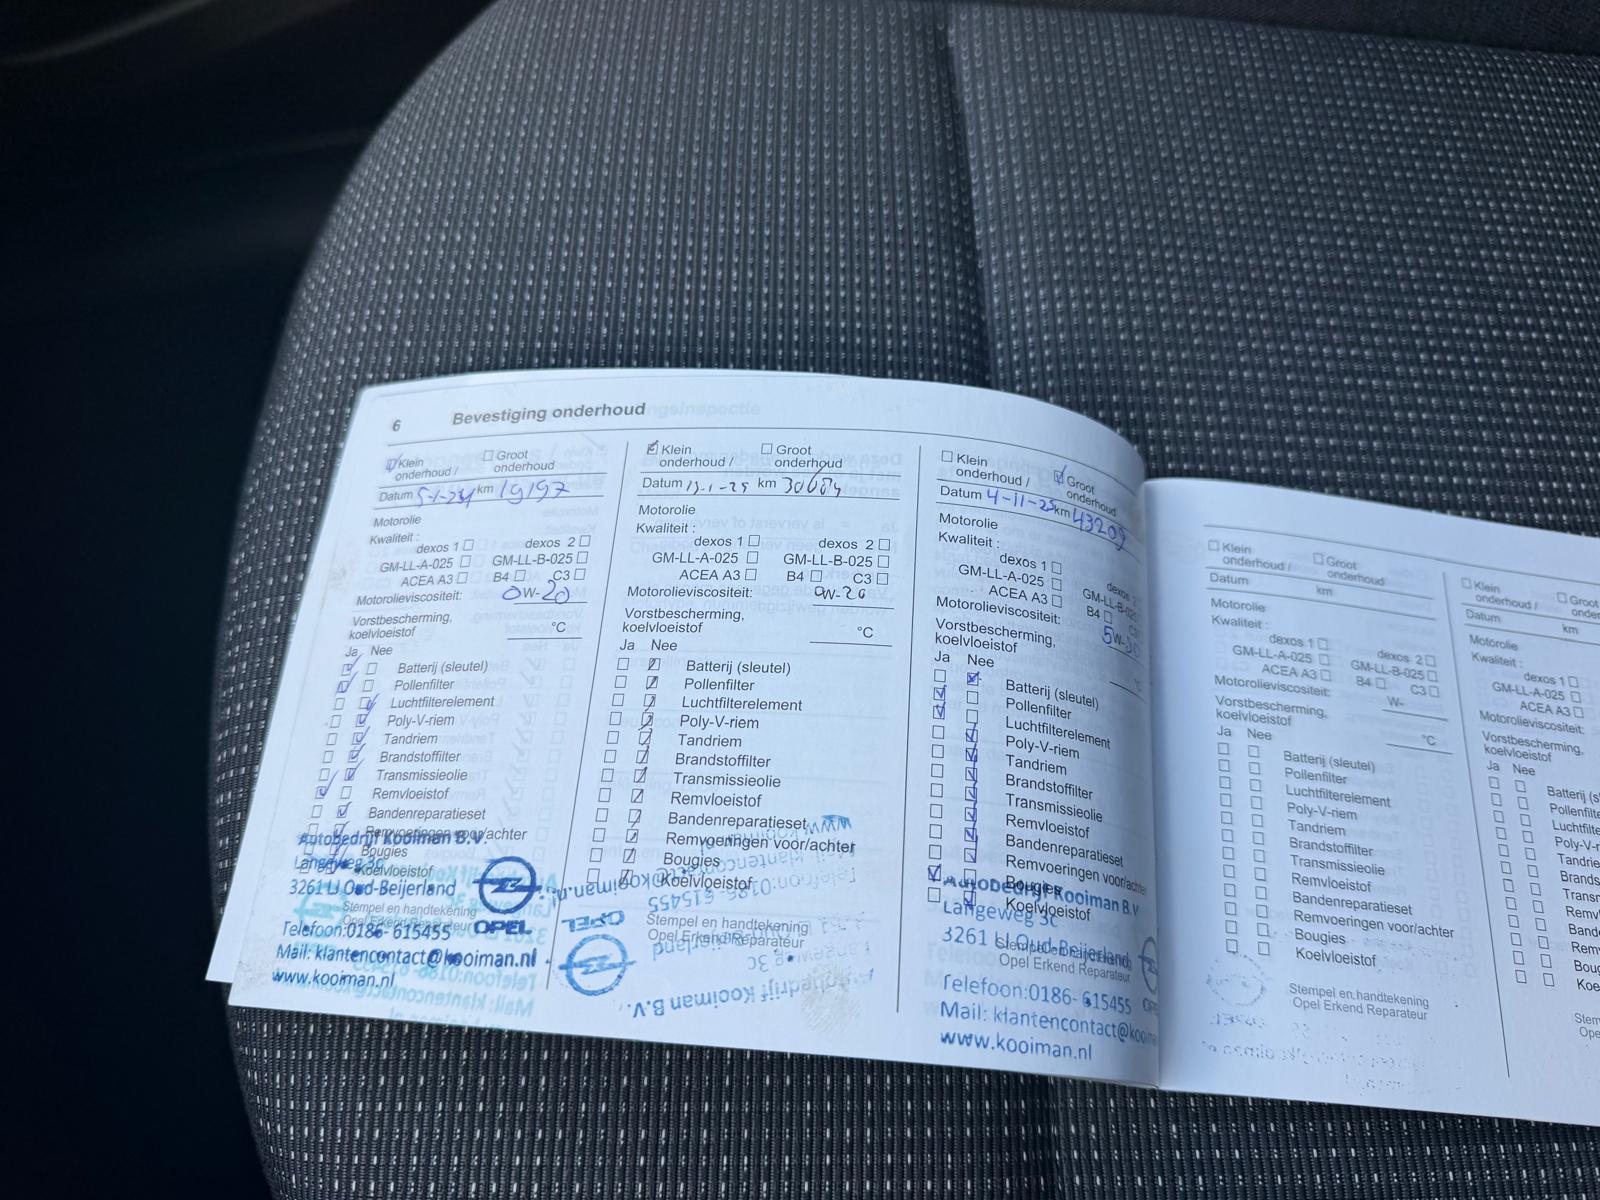 6 Bevestiging onderhoud
Klein onderhoud / Groot onderhoud
Datum 5-1-24 km 19197
Motorolie
Kwaliteit :
dexos 1 dexos 2
GM-LL-A-025 GM-LL-B-025
ACEA A3 B4 C3
Motorolieviscositeit: 0W-20
Vorstbescherming,
koelvloeistof °C
Ja Nee
Batterij (sleutel)
Pollenfilter
Luchtfilterelement
Poly-V-riem
Tandriem
Brandstoffilter
Transmissieolie
Remvloeistof
Bandenreparatieset
Remvoeringen voor/achter
Bougies
Koelvloeistof
Stempel en handtekening
Opel Erkend Reparateur
Autobedrijf Kooiman B.V.
Langeweg 3c
3261 LJ Oud-Beijerland
Telefoon:0186-615455 OPEL
Mail: klantencontact@kooiman.nl
www.kooiman.nl
Klein onderhoud / Groot onderhoud
Datum km
Motorolie
Kwaliteit :
dexos 1 dexos 2
GM-LL-A-025 GM-LL-B-025
ACEA A3 B4 C3
Motorolieviscositeit: 0W-20
Vorstbescherming,
koelvloeistof °C
Ja Nee
Batterij (sleutel)
Pollenfilter
Luchtfilterelement
Poly-V-riem
Tandriem
Brandstoffilter
Transmissieolie
Remvloeistof
Bandenreparatieset
Remvoeringen voor/achter
Bougies
Koelvloeistof
Stempel en handtekening
Opel Erkend Reparateur
Autobedrijf Kooiman B.V.
OPEL
Klein onderhoud / Groot onderhoud
Datum 4-11-25 km 43209
Motorolie
Kwaliteit :
dexos 1 dexos
GM-LL-A-025 GM-LL-B-025
ACEA A3 B4
Motorolieviscositeit: 5W-30
Vorstbescherming,
koelvloeistof
Ja Nee
Batterij (sleutel)
Pollenfilter
Luchtfilterelement
Poly-V-riem
Tandriem
Brandstoffilter
Transmissieolie
Remvloeistof
Bandenreparatieset
Remvoeringen voor/achter
Bougies
Koelvloeistof
Stempel en handtekening
Opel Erkend Reparateur
Autobedrijf Kooiman B.V
Langeweg 3c
3261 LJ Oud-Beijerland
Telefoon:0186-615455
Mail: klantencontact@kooi
www.kooiman.nl
Klein onderhoud / Groot onderhoud
Datum km
Motorolie
Kwaliteit :
dexos 1 dexos 2
GM-LL-A-025 GM-LL-B-025
ACEA A3 B4 C3
Motorolieviscositeit: W-
Vorstbescherming,
koelvloeistof °C
Ja Nee
Batterij (sleutel)
Pollenfilter
Luchtfilterelement
Poly-V-riem
Tandriem
Brandstoffilter
Transmissieolie
Remvloeistof
Bandenreparatieset
Remvoeringen voor/achter
Bougies
Koelvloeistof
Stempel en handtekening
Opel Erkend Reparateur
Klein onderhoud / Groot
Datum km
Motorolie
Kwaliteit :
dexos 1
GM-LL-A-025
ACEA A3
Motorolieviscositeit:
Vorstbescherming,
koelvloeistof
Ja Nee
Batterij (s
Pollenfilt
Luchtfilt
Poly-V-r
Tandrie
Brands
Trans
Remv
Band
Rem
Boug
Koe
Stem
Ope